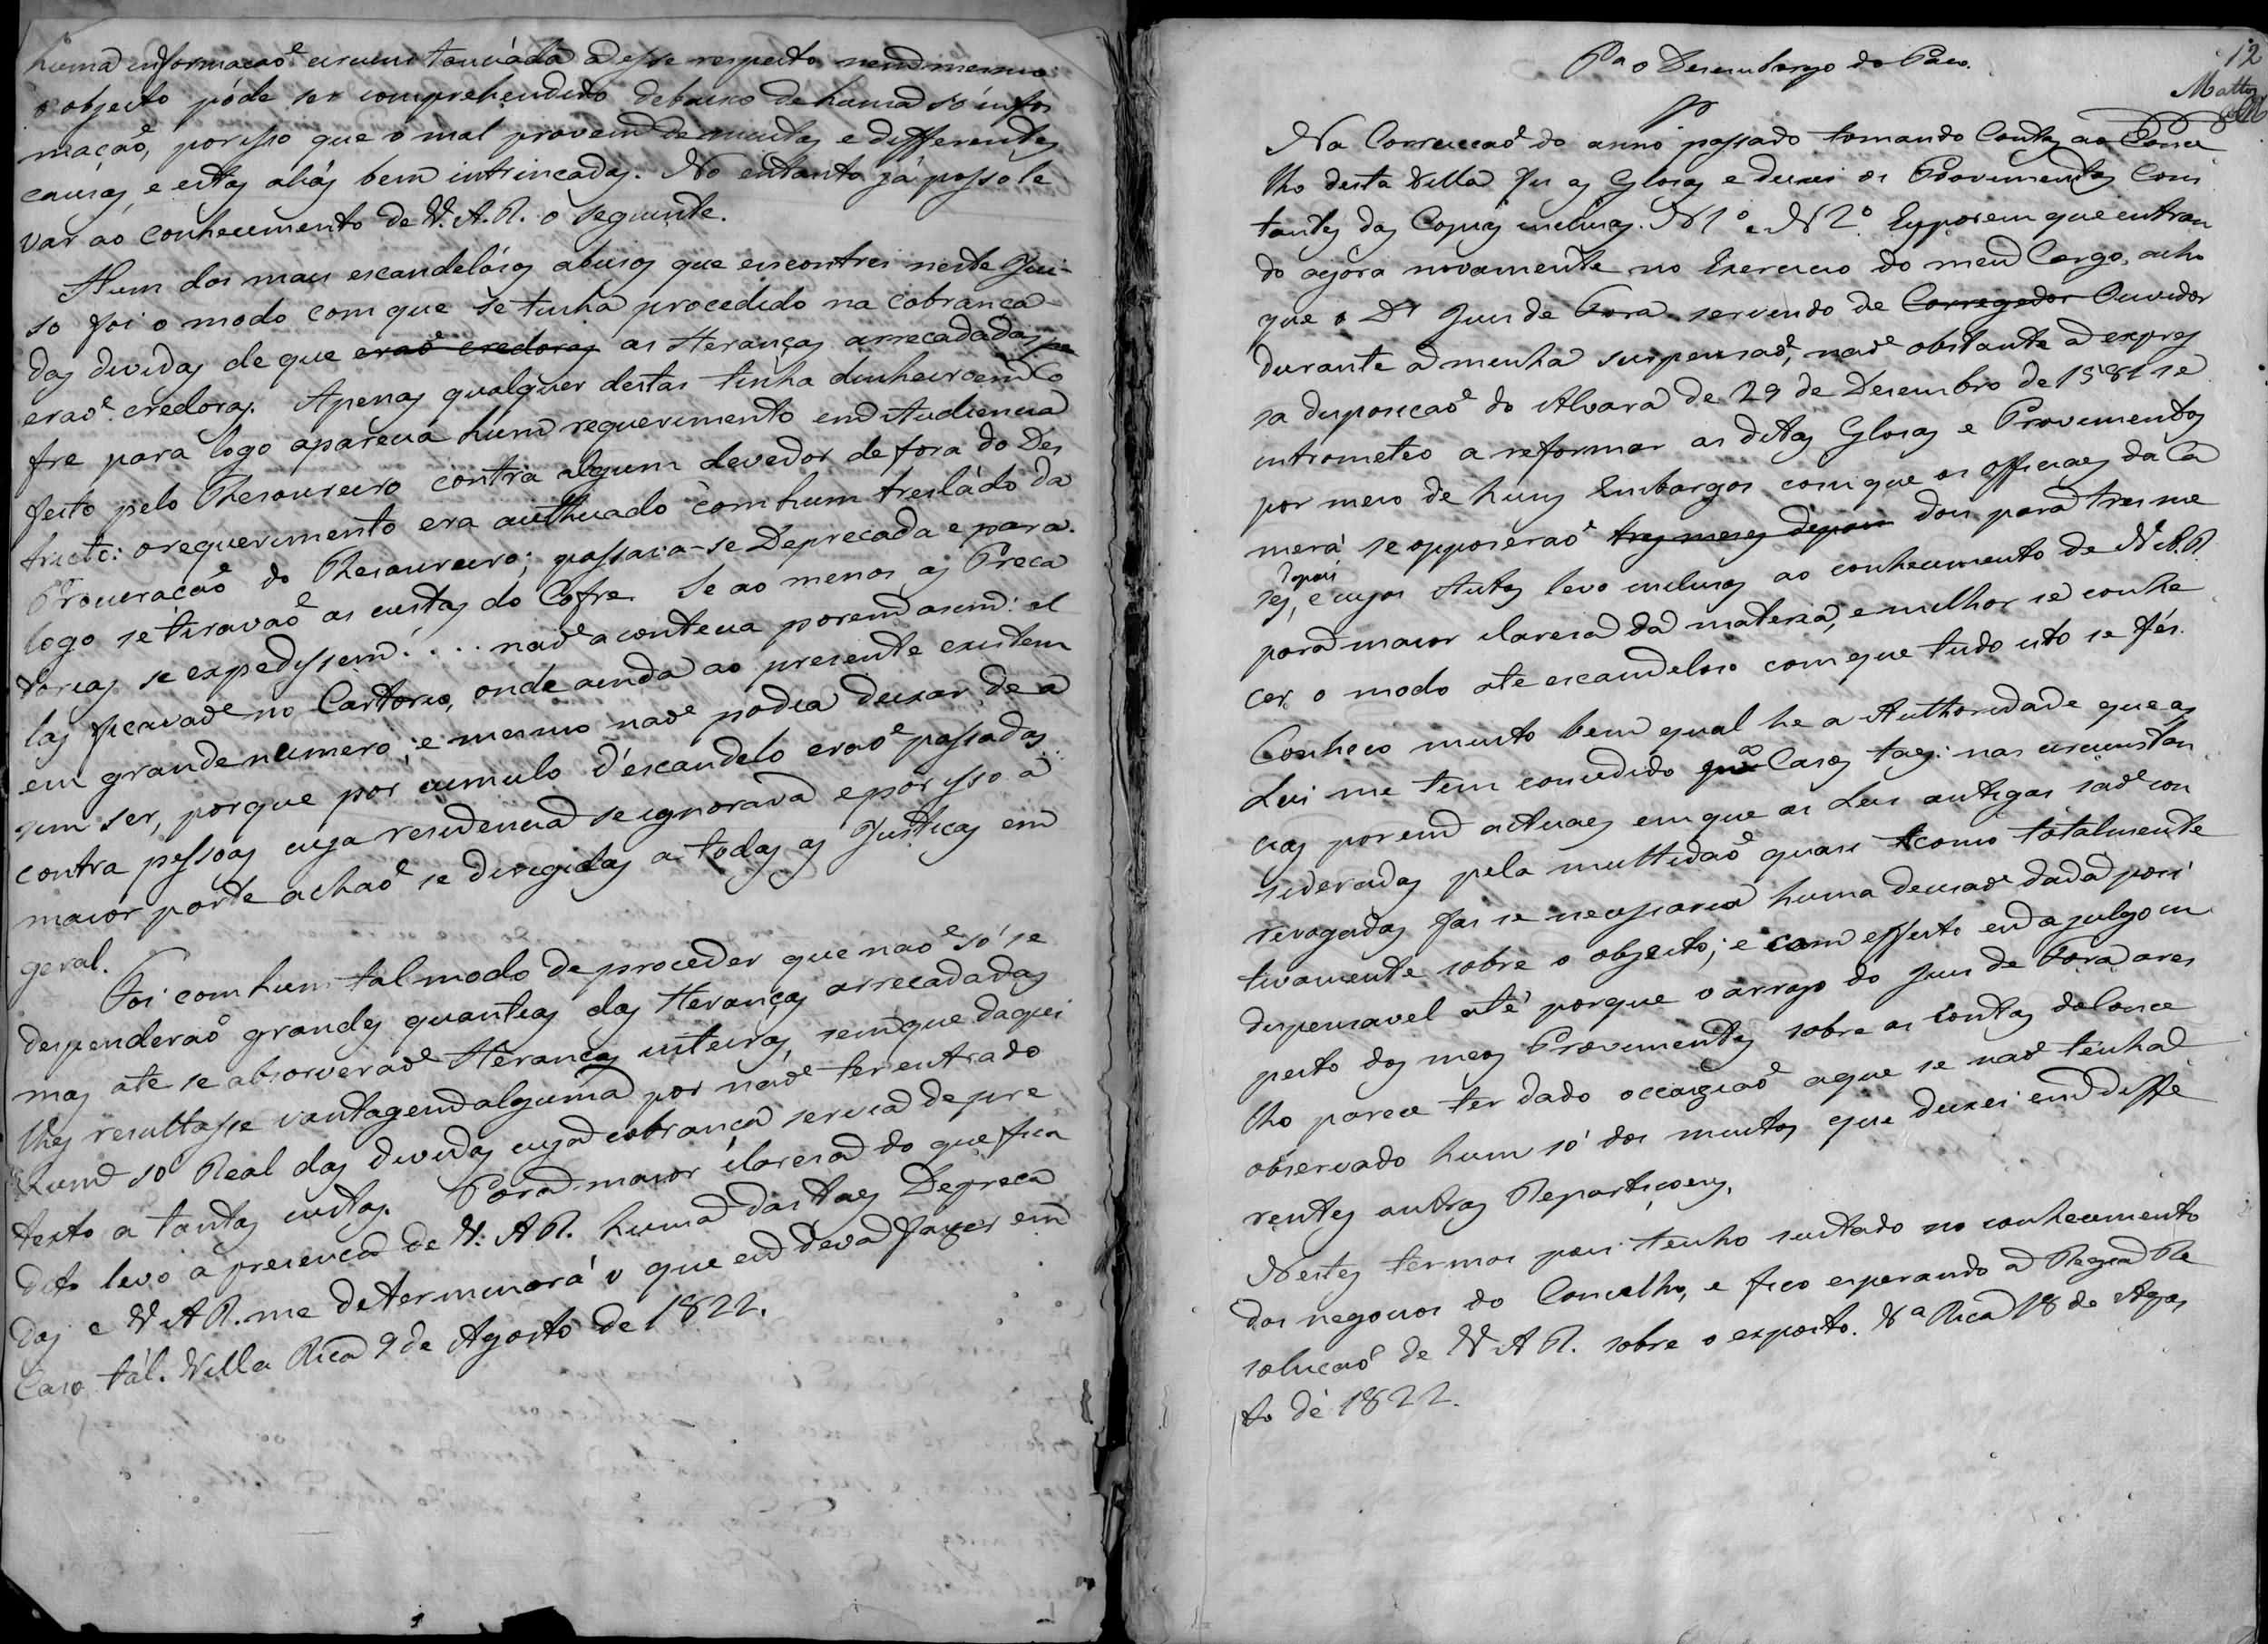 huma informação circunstanciada a esse respeito nem mesmo
o objecto póde ser comprehendido debaixo de huma só infor
mação, porisso que o mal provem de muitas e differentes
causas, e estas aliás bem intrincadas. No entanto já posso le
var ao conhecimento de V. A. R. o seguinte.
Hum dos mais escandelósos abusos que encontrei neste Jui-
so foi o modo com que se tinha procedido na cobrança
das dividas de que eraõ credoras as Heranças arrecadadas
eraõ credoras. Apenas qualquer destas tinha dinheiro em Co
fre para logo aparecia hum requerimento em Audiencia
feito pelo Thesoureiro contra algum devedor de fora do Des
tricto: o requerimento era authuado com hum tresládo da
Procuração do Thesoureiro; passava-se Deprecada e para
logo se tiravaõ as custas do Cofre. Se ao menos as Preca
torias se expedissem.... naõ acontecia porem asim: el
las ficavaõ no Cartorio, onde ainda ao presente existem
em grande numero; e mesmo naõ podia deixar de a
sim ser, porque por cumulo d'escandelo eraõ passadas
contra pessoas cuja residencia se ignorava e por isso a
maior parte achaõ se dirigidas a todas as Justiças em
geral.
Foi com hum tal modo de proceder que naõ só se
despenderaõ grandes quantias das Heranças arrecadadas
mas ate se absorveraõ Heranças inteiras, sem que daqui
lhes resultasse vantagem alguma por naõ ter entrado
hum so Real das dividas cuja cobrança servia de pre
texto a tantas custas. Para maior claresa do que fica
dito levo á presença de V. A. R. huma das taes Depreca
das e V. A. R. me determinará o que eu deva fazer em
Caso tál. Villa Rica 9 de Agosto de 1822.
12
Mattos
Pa o Desembargo do Paço.
Na Correiçaõ do anno passado tomando Contas ao Conce
lho desta Villa fis as Glosas e deixei os Provimentos Cons
tantes das Copias inclusas. N 1º e N 2º. Eis porem que entran
do agora novamente no Exercicio do meu Cargo, acho
que o Dr Juis de Fora servindo de Corregedor Ouvidor
durante a minha suspensaõ, naõ obstante a expres
sa disposiçaõ do Alvara de 29 de Desembro de 1581 se
intrometeo a reformar as ditas Glosas e Provimentos
por meio de huns Embargos com que os Officiaes da Ca
mera se opposeraõ tres meses depois dois para tres me
depois
ses, e cujos Autos levo inclusos ao conhecimento de V. A. R.
para maior claresa da materia, e milhor se conhe
cer o modo ate escandeloso com que tudo isto se fés.
Conheço muito bem qual he a Authoridade que as
Leis me tem concedido Casos taes: nas circunstan
cias porem actuaes em que as Leis antigas saõ con
sideradas pela multidaõ quasi como totalmente
revogadas fas se necessaria huma decisaõ dada posi
tivamente sobre o objecto; e com effeito eu a julgo in
dispensavel até porque o arrojo do Juis de Fora a res
peito dos meos Provimentos sobre as Contas do Conce
lho parece ter dado occasiaõ a que se naõ tenha
observado hum só dos muitos, que deixei em diffe
rentes outras Repartiçoens.
Nestes termos pois tenho sustado no conhecimento
dos negocios do Concelho, e fico esperando a Regia Re
soluçaõ de V. A. R. sobre o exposto. Va Rica 18 de Agos
to de 1822.